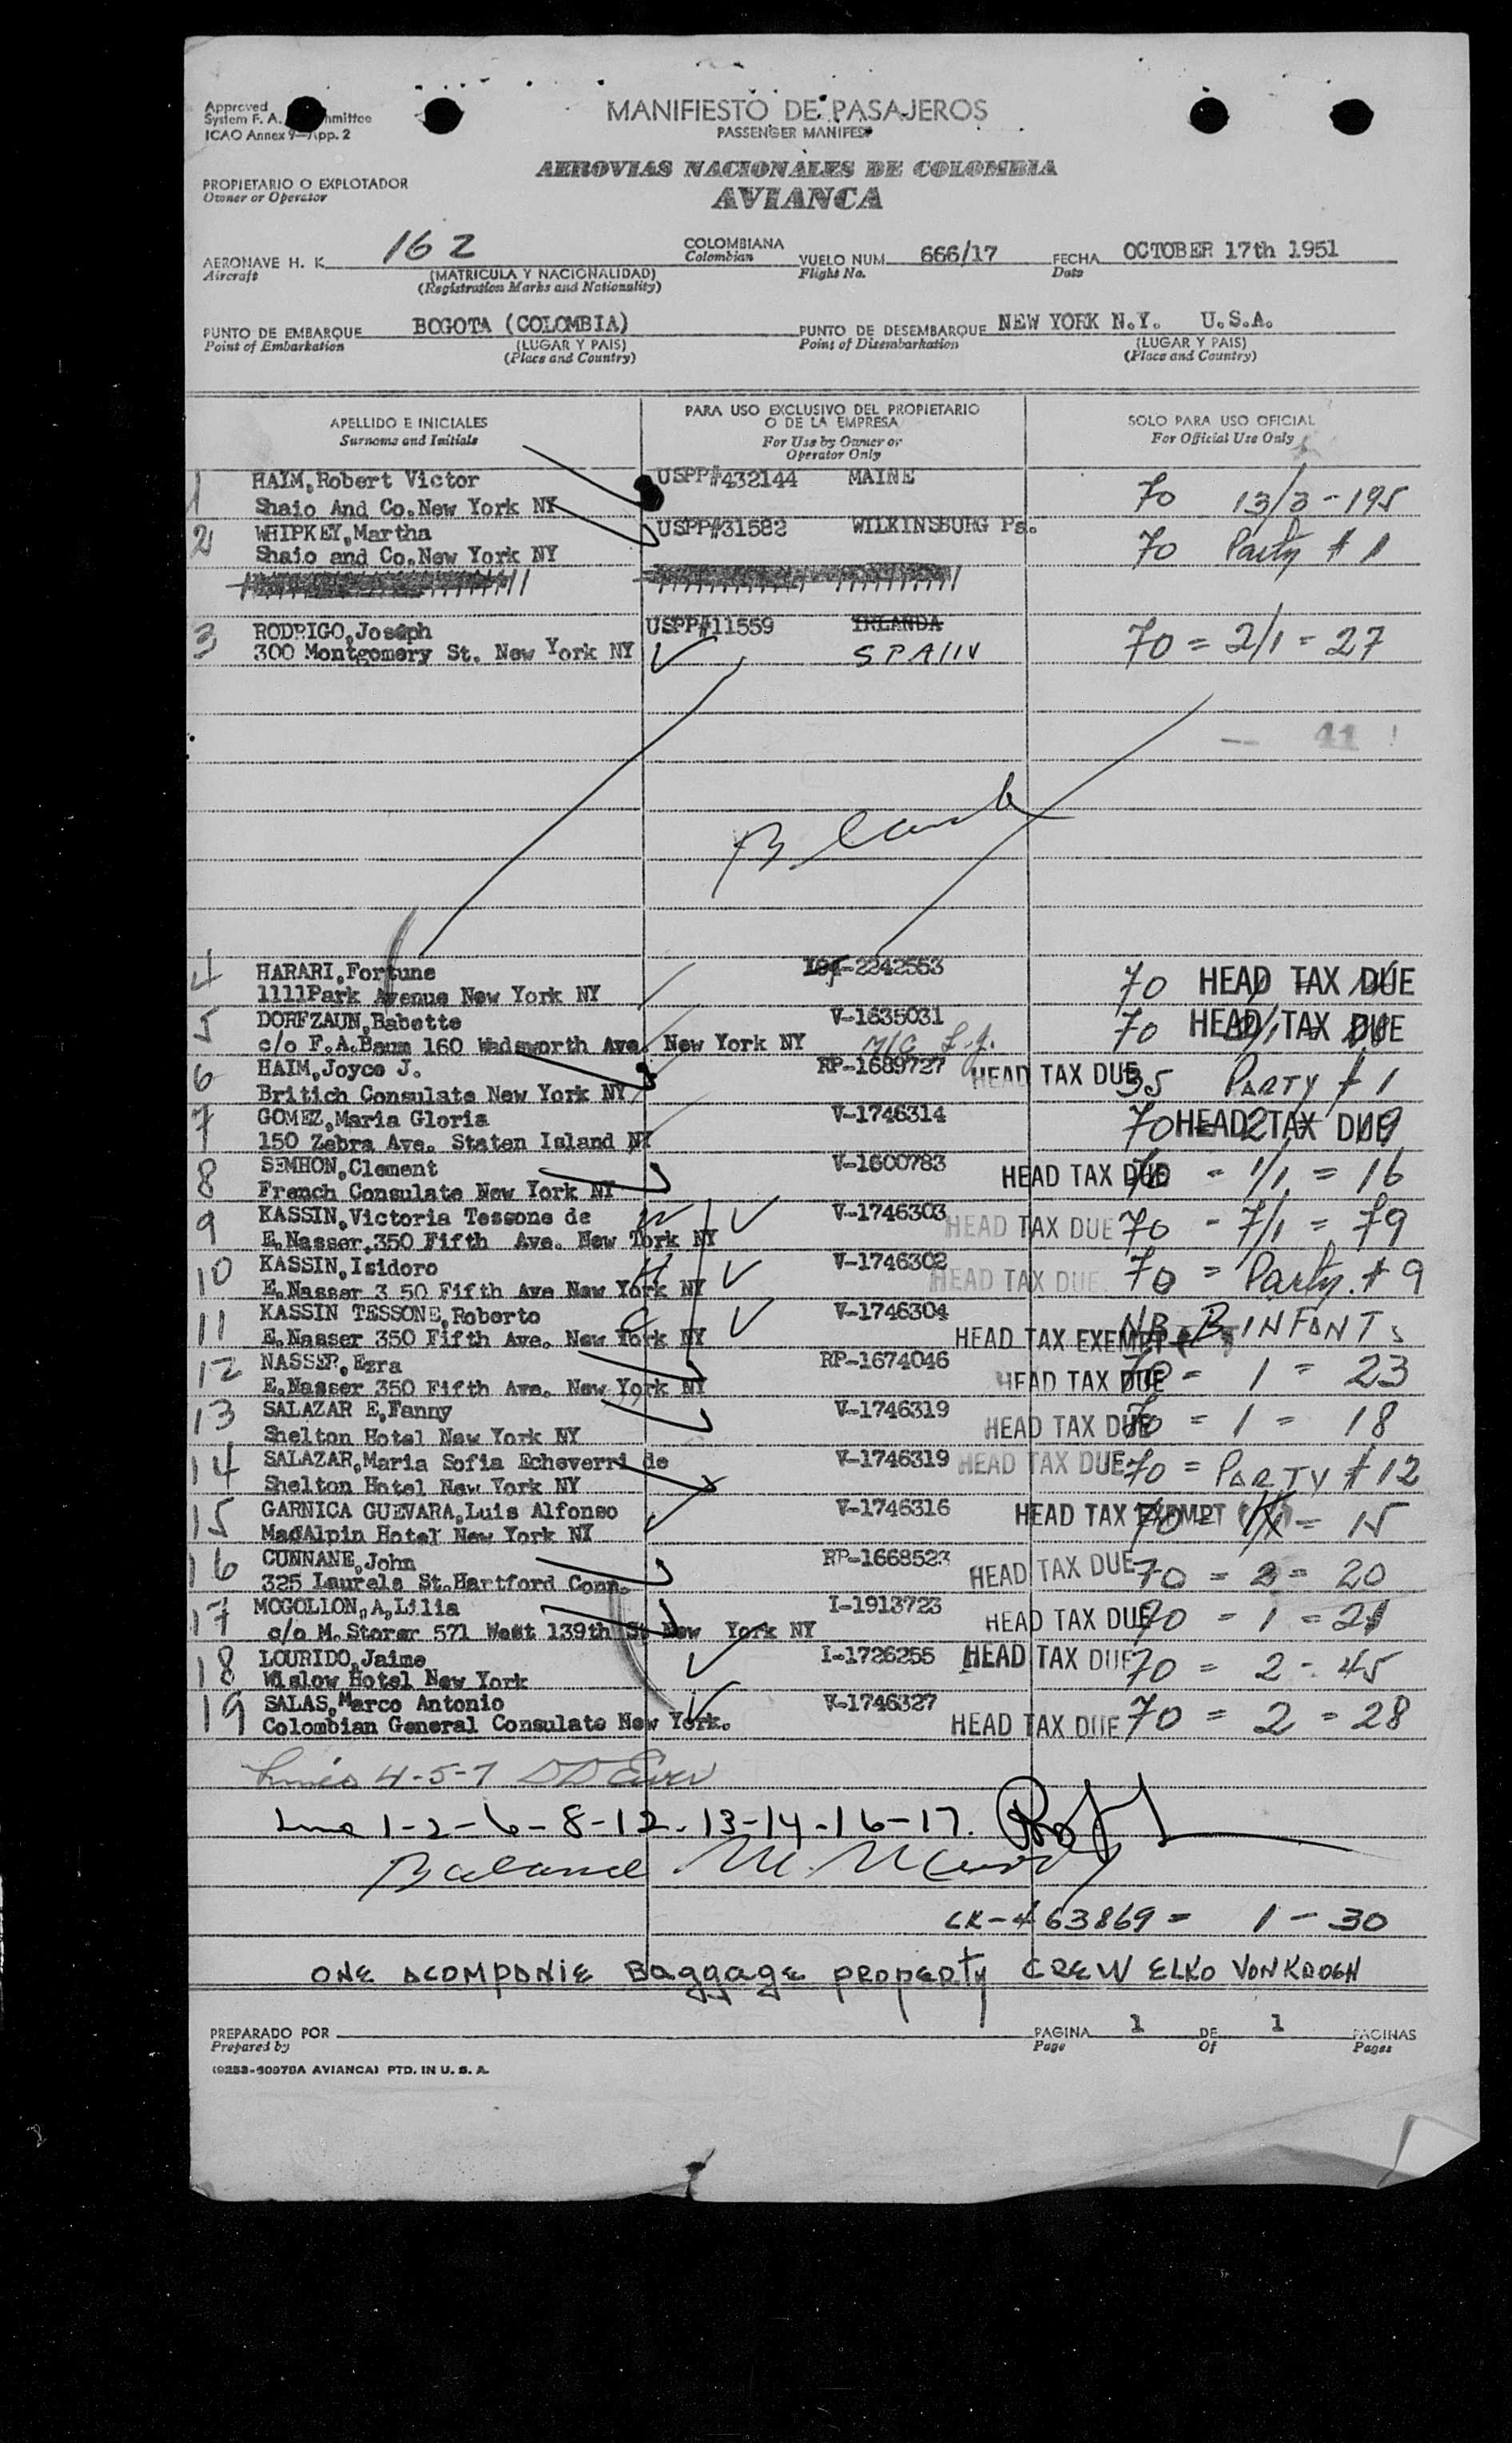 Approved
System F. A. mmittee
ICAO Annex 9—App. 2
MANIFIESTO DE PASAJEROS
PASSENGER MANIFEST
AEROVIAS NACIONALES DE COLOMBIA
AVIANCA
PROPIETARIO O EXPLOTADOR
Owner or Operator
AERONAVE H. K. 162 COLOMBIANA VUELO NUM. 666/17 FECHA OCTOBER 17th 1951
Aircraft (MATRICULA Y NACIONALIDAD) Colombian Flight No. Date
(Registration Marks and Nationality)
PUNTO DE EMBARQUE BOGOTA (COLOMBIA) PUNTO DE DESEMBARQUE NEW YORK N.Y. U.S.A.
Point of Embarkation (LUGAR Y PAIS) Point of Disembarkation (LUGAR Y PAIS)
(Place and Country) (Place and Country)
APELLIDO E INICIALES PARA USO EXCLUSIVO DEL PROPIETARIO O DE LA EMPRESA SOLO PARA USO OFICIAL
Surname and Initials For Use by Owner or Operator Only For Official Use Only
1 HAIM,Robert Victor USPP#432144 MAINE 70 13/3-195
Shaio And Co.New York NY
2 WHIPKEY,Martha USPP#31582 WILKINSBURG Pa. 70 Party # 1
Shaio and Co.New York NY
3 RODRIGO,Joseph USPP#11559 IRLANDA 70 = 2/1 = 27
300 Montgomery St. New York NY SPAIN
41
Blank
4 HARARI,Fortune I94-2242553 70 HEAD TAX DUE
1111Park Avenue New York NY
5 DORFZAUN,Babette V-1635031 70 HEAD TAX DUE
c/o F.A.Baum 160 Wadsworth Ave. New York NY
6 HAIM,Joyce J. RP-1689727 HEAD TAX DUE 35 PARTY # 1
Britich Consulate New York NY
7 GOMEZ,Maria Gloria V-1746314 70 HEAD TAX DUE
150 Zebra Ave. Staten Island NY
8 SEMHON,Clement V-1600783 HEAD TAX DUE 70 - 1/1 = 16
French Consulate New York NY
9 KASSIN,Victoria Tessone de V-1746303 HEAD TAX DUE 70 - 7/1 = 79
E.Nasser.350 Fifth Ave. New York NY
10 KASSIN,Isidoro V-1746302 HEAD TAX DUE 70 = Party. # 9
E.Nasser 3 50 Fifth Ave New York NY
11 KASSIN TESSONE,Roberto V-1746304 HEAD TAX EXEMPT NB-B INFANT
E.Nasser 350 Fifth Ave. New York NY
12 NASSER,Ezra RP-1674046 HEAD TAX DUE 70 - 1 = 23
E.Nasser 350 Fifth Ave. New York NY
13 SALAZAR E,Fanny V-1746319 HEAD TAX DUE 70 = 1 = 18
Shelton Hotel New York NY
14 SALAZAR,Maria Sofia Echeverri de V-1746319 HEAD TAX DUE 70 = PARTY # 12
Shelton Hotel New York NY
15 GARNICA GUEVARA,Luis Alfonso V-1746316 HEAD TAX EXEMPT 70 = 15
MacAlpin Hotel New York NY
16 CUNNANE,John RP-1668523 HEAD TAX DUE 70 = 2 = 20
325 Laurels St.Hartford Conn.
17 MOGOLLON,A,Lilia I-1913723 HEAD TAX DUE 70 - 1 = 21
c/o M.Storer 571 West 139th St New York NY
18 LOURIDO,Jaime I-1726255 HEAD TAX DUE 70 = 2 - 45
Wislow Hotel New York
19 SALAS,Marco Antonio V-1746327 HEAD TAX DUE 70 = 2 = 28
Colombian General Consulate New York.
Lines 4-5-7
Line 1-2-6-8-12-13-14-16-17.
Balance
CK-#63869 = 1-30
ONE ACOMPANIE Baggage property CREW ELKO VON KROGH
PREPARADO POR PAGINA 1 DE 1 PAGINAS
Prepared by Page Of Pages
(9253-60978A AVIANCA) PTD. IN U. S. A.